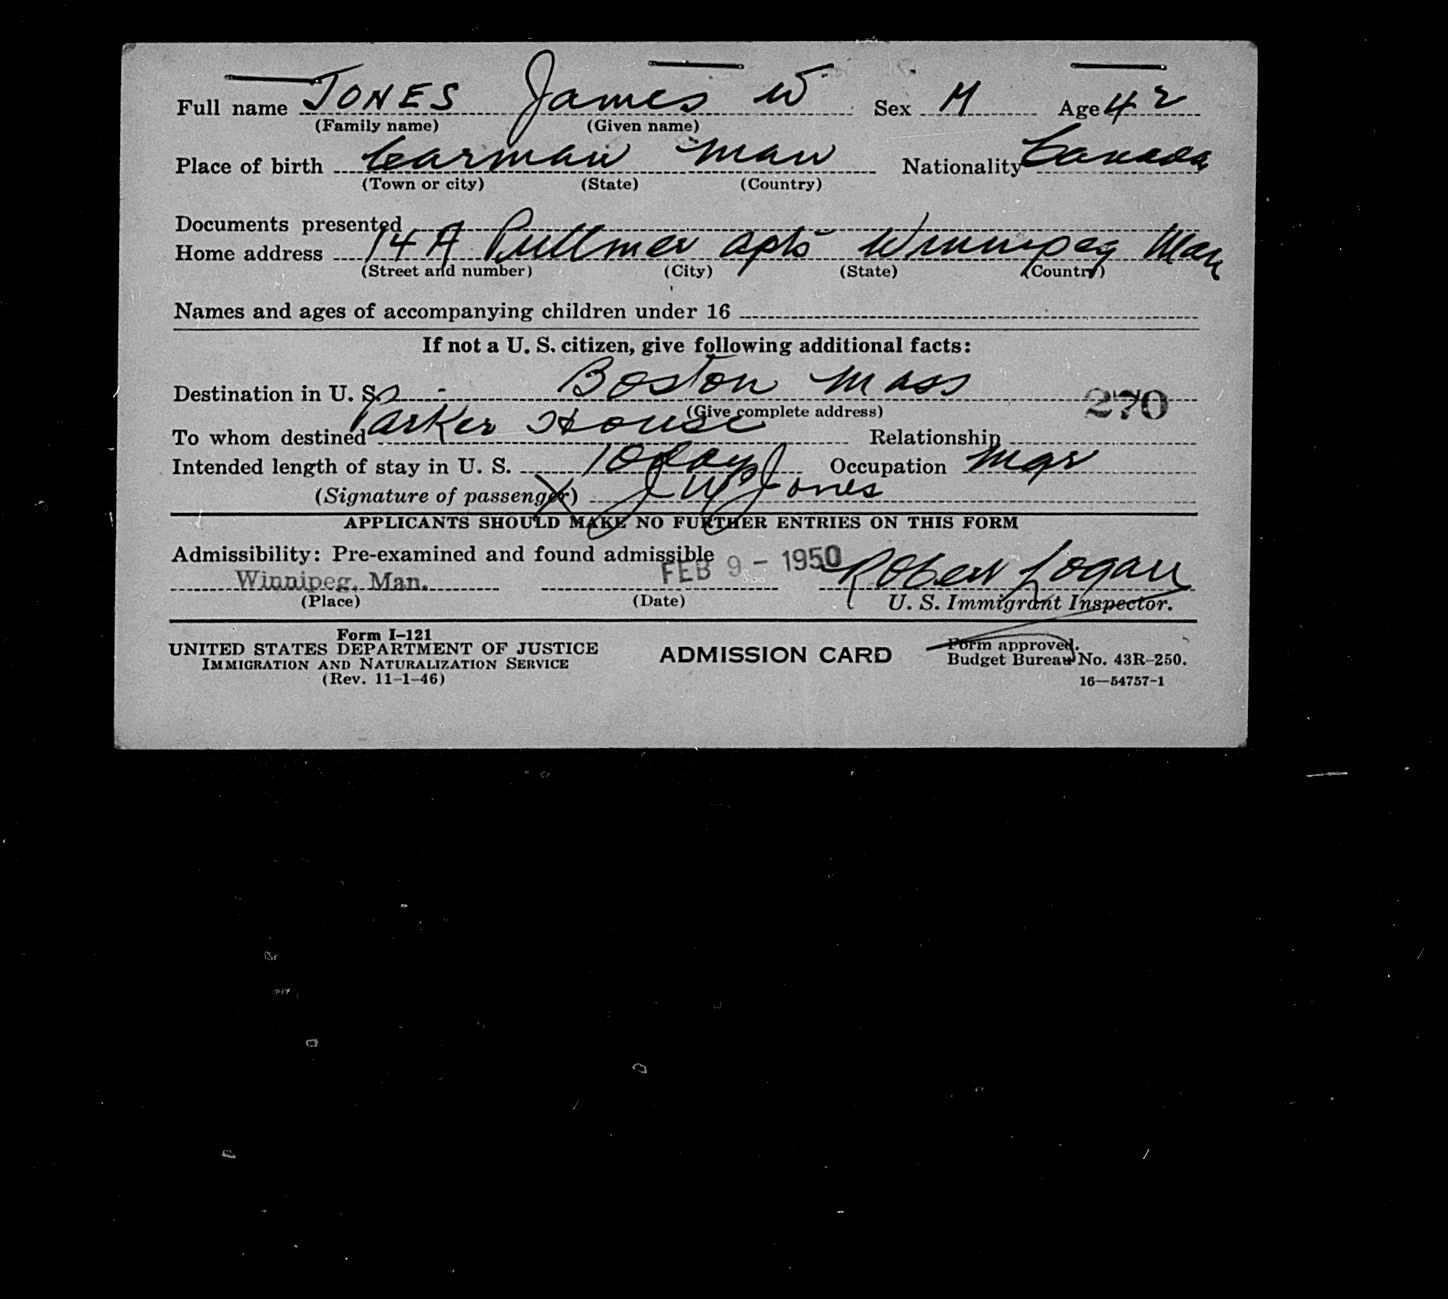 Full name JONES James W Sex M Age 42
(Family name) (Given name)
Place of birth Carman Man Nationality Canada
(Town or city) (State) (Country)
Documents presented
Home address 14 A Pullmer apts Winnipeg Man
(Street and number) (City) (State) (Country)
Names and ages of accompanying children under 16
If not a U. S. citizen, give following additional facts:
Destination in U. S. Boston Mass
(Give complete address) 270
To whom destined Parker House Relationship
Intended length of stay in U. S. 10 days Occupation Mgr
(Signature of passenger) X J W Jones
APPLICANTS SHOULD MAKE NO FURTHER ENTRIES ON THIS FORM
Admissibility: Pre-examined and found admissible
Winnipeg, Man. FEB 9 - 1950 Robert Logan
(Place) (Date) U. S. Immigrant Inspector.
Form I-121
UNITED STATES DEPARTMENT OF JUSTICE
IMMIGRATION AND NATURALIZATION SERVICE
(Rev. 11-1-46)
ADMISSION CARD
Form approved.
Budget Bureau No. 43R-250.
16—54757-1